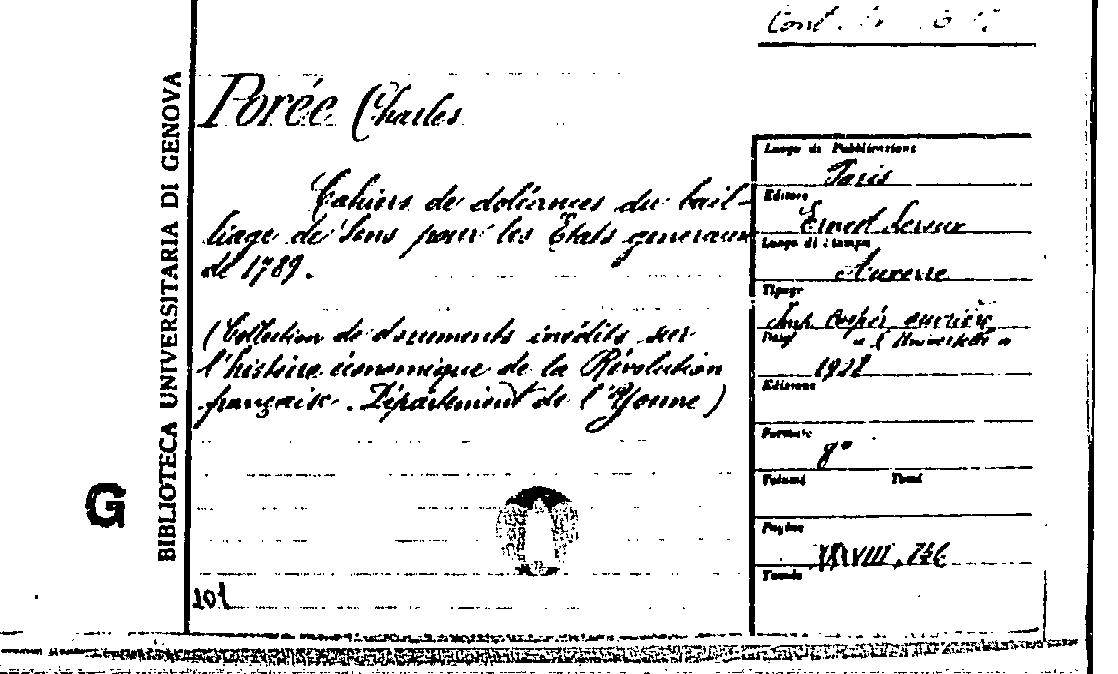 Cont.
BIBLIOTECA UNIVERSITARIA DI GENOVA
G
Porée Charles
Cahiers de doléances du bail-
liage de Sens pour les Etats generaux
de 1789.
(Collection de documents inédits sur
l'histoire économique de la Révolution
française. Département de l'Yonne)
101
Luogo di Pubblicazione
Paris
Editore
Ernest Leroux
Luogo di stampa
Auxerre
Tipogr
Imp. coopér. ouvrière
"L'Universelle"
Data
Edizione
Formato
8°
Volumi Tomi
Pagine
746
Tavole